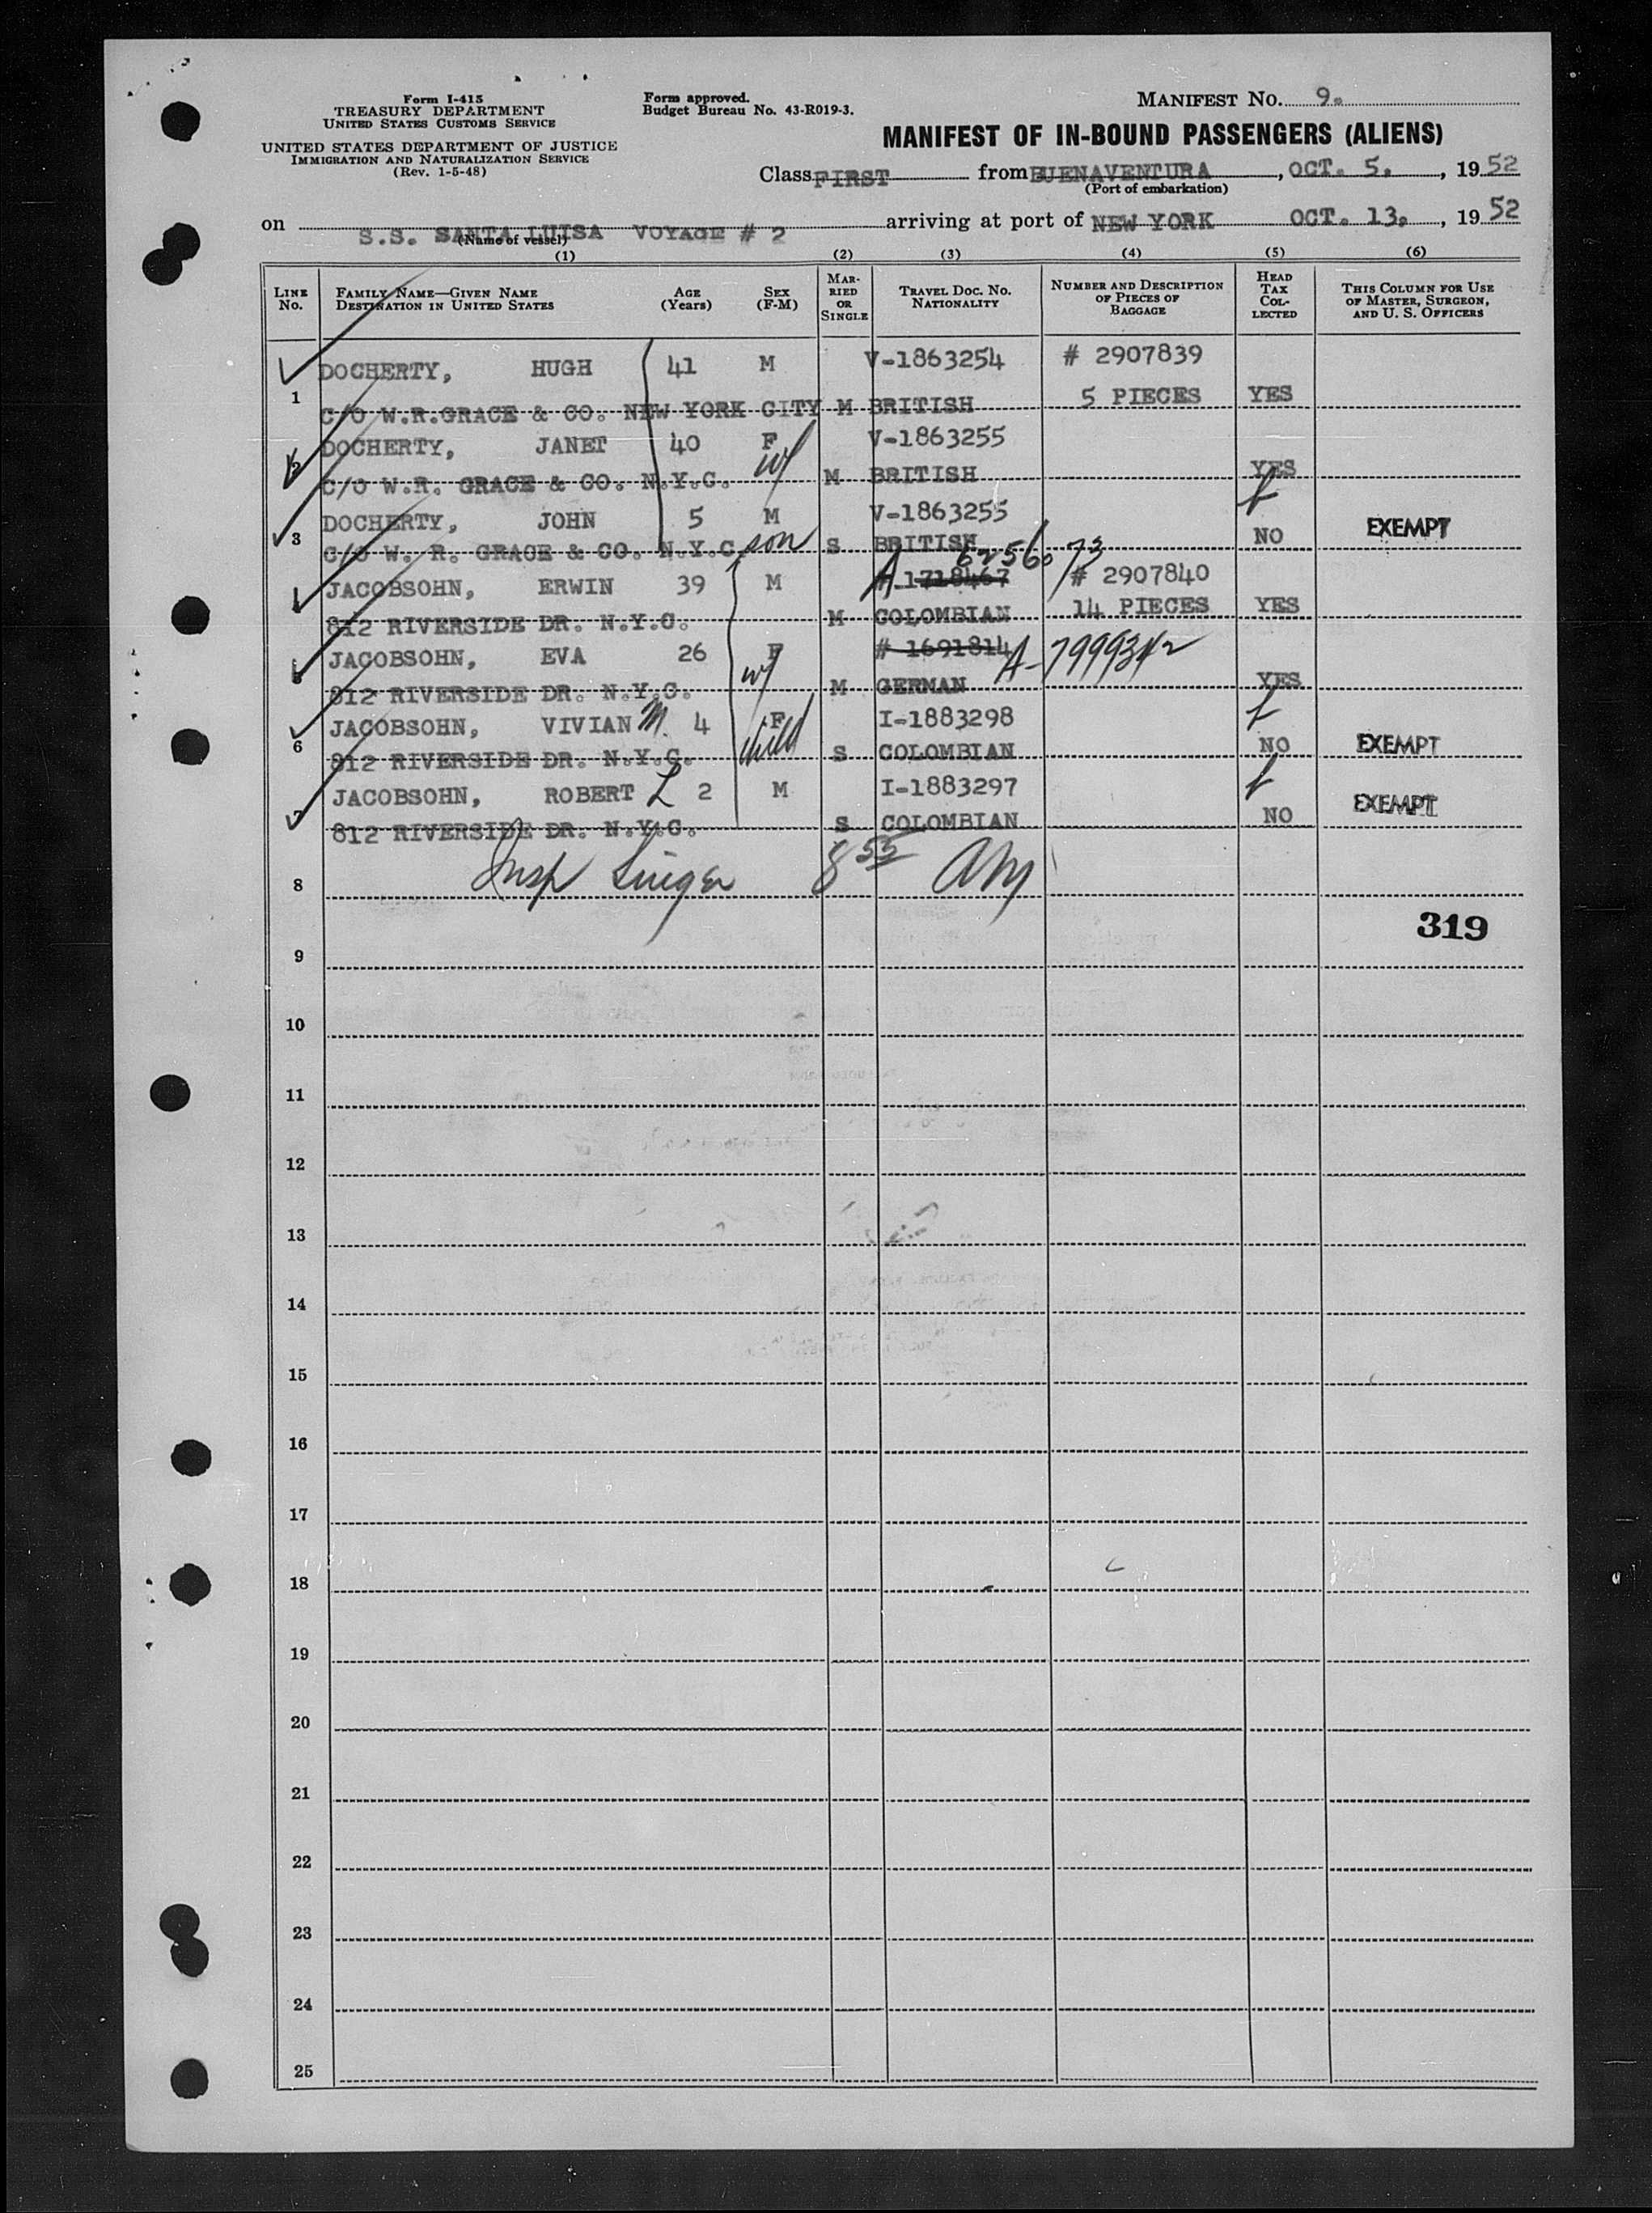 Form I-415
TREASURY DEPARTMENT
UNITED STATES CUSTOMS SERVICE
UNITED STATES DEPARTMENT OF JUSTICE
IMMIGRATION AND NATURALIZATION SERVICE
(Rev. 1-5-48)
Form approved.
Budget Bureau No. 43-R019-3.
MANIFEST NO. 9.
MANIFEST OF IN-BOUND PASSENGERS (ALIENS)
Class FIRST from BUENAVENTURA, OCT. 5., 1952
(Port of embarkation)
on S.S. SANTA LUISA VOYAGE # 2 arriving at port of NEW YORK OCT. 13., 1952
(Name of vessel)
(1) (2) (3) (4) (5) (6)
LINE No. FAMILY NAME—GIVEN NAME DESTINATION IN UNITED STATES AGE (Years) SEX (F-M) MARRIED OR SINGLE TRAVEL DOC. NO. NATIONALITY NUMBER AND DESCRIPTION OF PIECES OF BAGGAGE HEAD TAX COLLECTED THIS COLUMN FOR USE OF MASTER, SURGEON, AND U. S. OFFICERS
DOCHERTY, HUGH 41 M V-1863254 # 2907839
1 C/O W.R.GRACE & CO. NEW YORK CITY M BRITISH 5 PIECES YES
DOCHERTY, JANET 40 F V-1863255
2 C/O W.R. GRACE & CO. N.Y.C. wf M BRITISH YES
DOCHERTY, JOHN 5 M V-1863255
3 C/O W. R. GRACE & CO. N.Y.C. son S BRITISH NO EXEMPT
JACOBSOHN, ERWIN 39 M # 1718467 A 6256073 # 2907840
812 RIVERSIDE DR. N.Y.C. M COLOMBIAN 14 PIECES YES
JACOBSOHN, EVA 26 F # 1691814 A-7999342
5 812 RIVERSIDE DR. N.Y.C. wf M GERMAN YES
JACOBSOHN, VIVIAN M. 4 F I-1883298
6 812 RIVERSIDE DR. N.Y.C. child S COLOMBIAN NO EXEMPT
JACOBSOHN, ROBERT L 2 M I-1883297
7 812 RIVERSIDE DR. N.Y.C. S COLOMBIAN NO EXEMPT
8 Insp Singer 8 55 AM
319
9
10
11
12
13
14
15
16
17
18
19
20
21
22
23
24
25